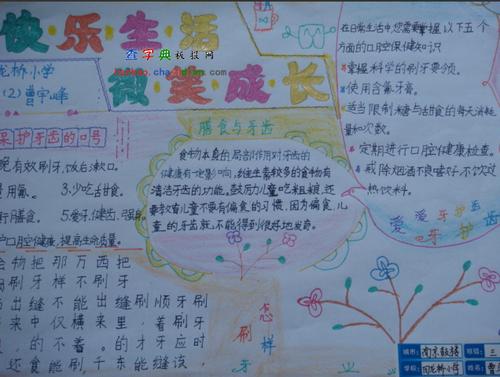 快乐生活
查字典板报网
微笑成长
龙桥小学
(2)曹宇峰
保护牙齿的口号
有效刷牙，饭后漱口
3.少吃甜食。
膳食。
5.爱牙，健齿，强身。
口腔健康，提高生命质量。
膳食与牙齿
食物本身的局部作用对牙齿的
健康有一定影响，纤维素较多的食物有
清洁牙齿的功能。鼓励儿童吃粗粮，还
要教育儿童不要有偏食的习惯，因为偏食，儿
童的牙齿就不能得到很好地发育。
在日常生活中，您需要掌握以下五个
方面的口腔保健知识
掌握科学的刷牙要领。
使用含氟牙膏。
适当限制糖与甜食的每天消耗
量和次数。
定期进行口腔健康检查。
戒除烟酒不良嗜好，不饮过
热饮料。
爱牙护齿
爱牙护齿
怎样刷牙
物把那万西把
刷牙样不刷牙
出缝不能出缝刷顺牙刷
来中仅横来里，着刷牙
，的不着。的才牙应时
还食能刷，千东能缝该，
城市：
南京
班级：
三
学校：
龙桥小学
姓名：
曹